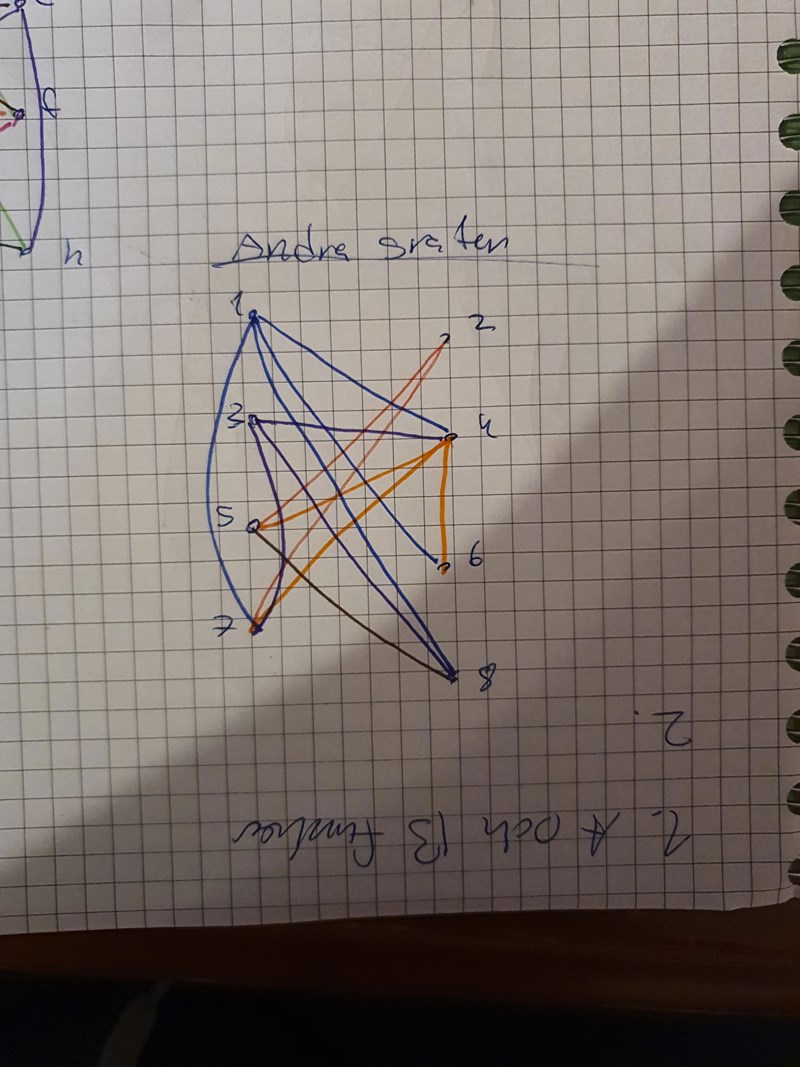 h
Andra grafen
1
2
3
4
5
6
7
8
2.
1. A och B